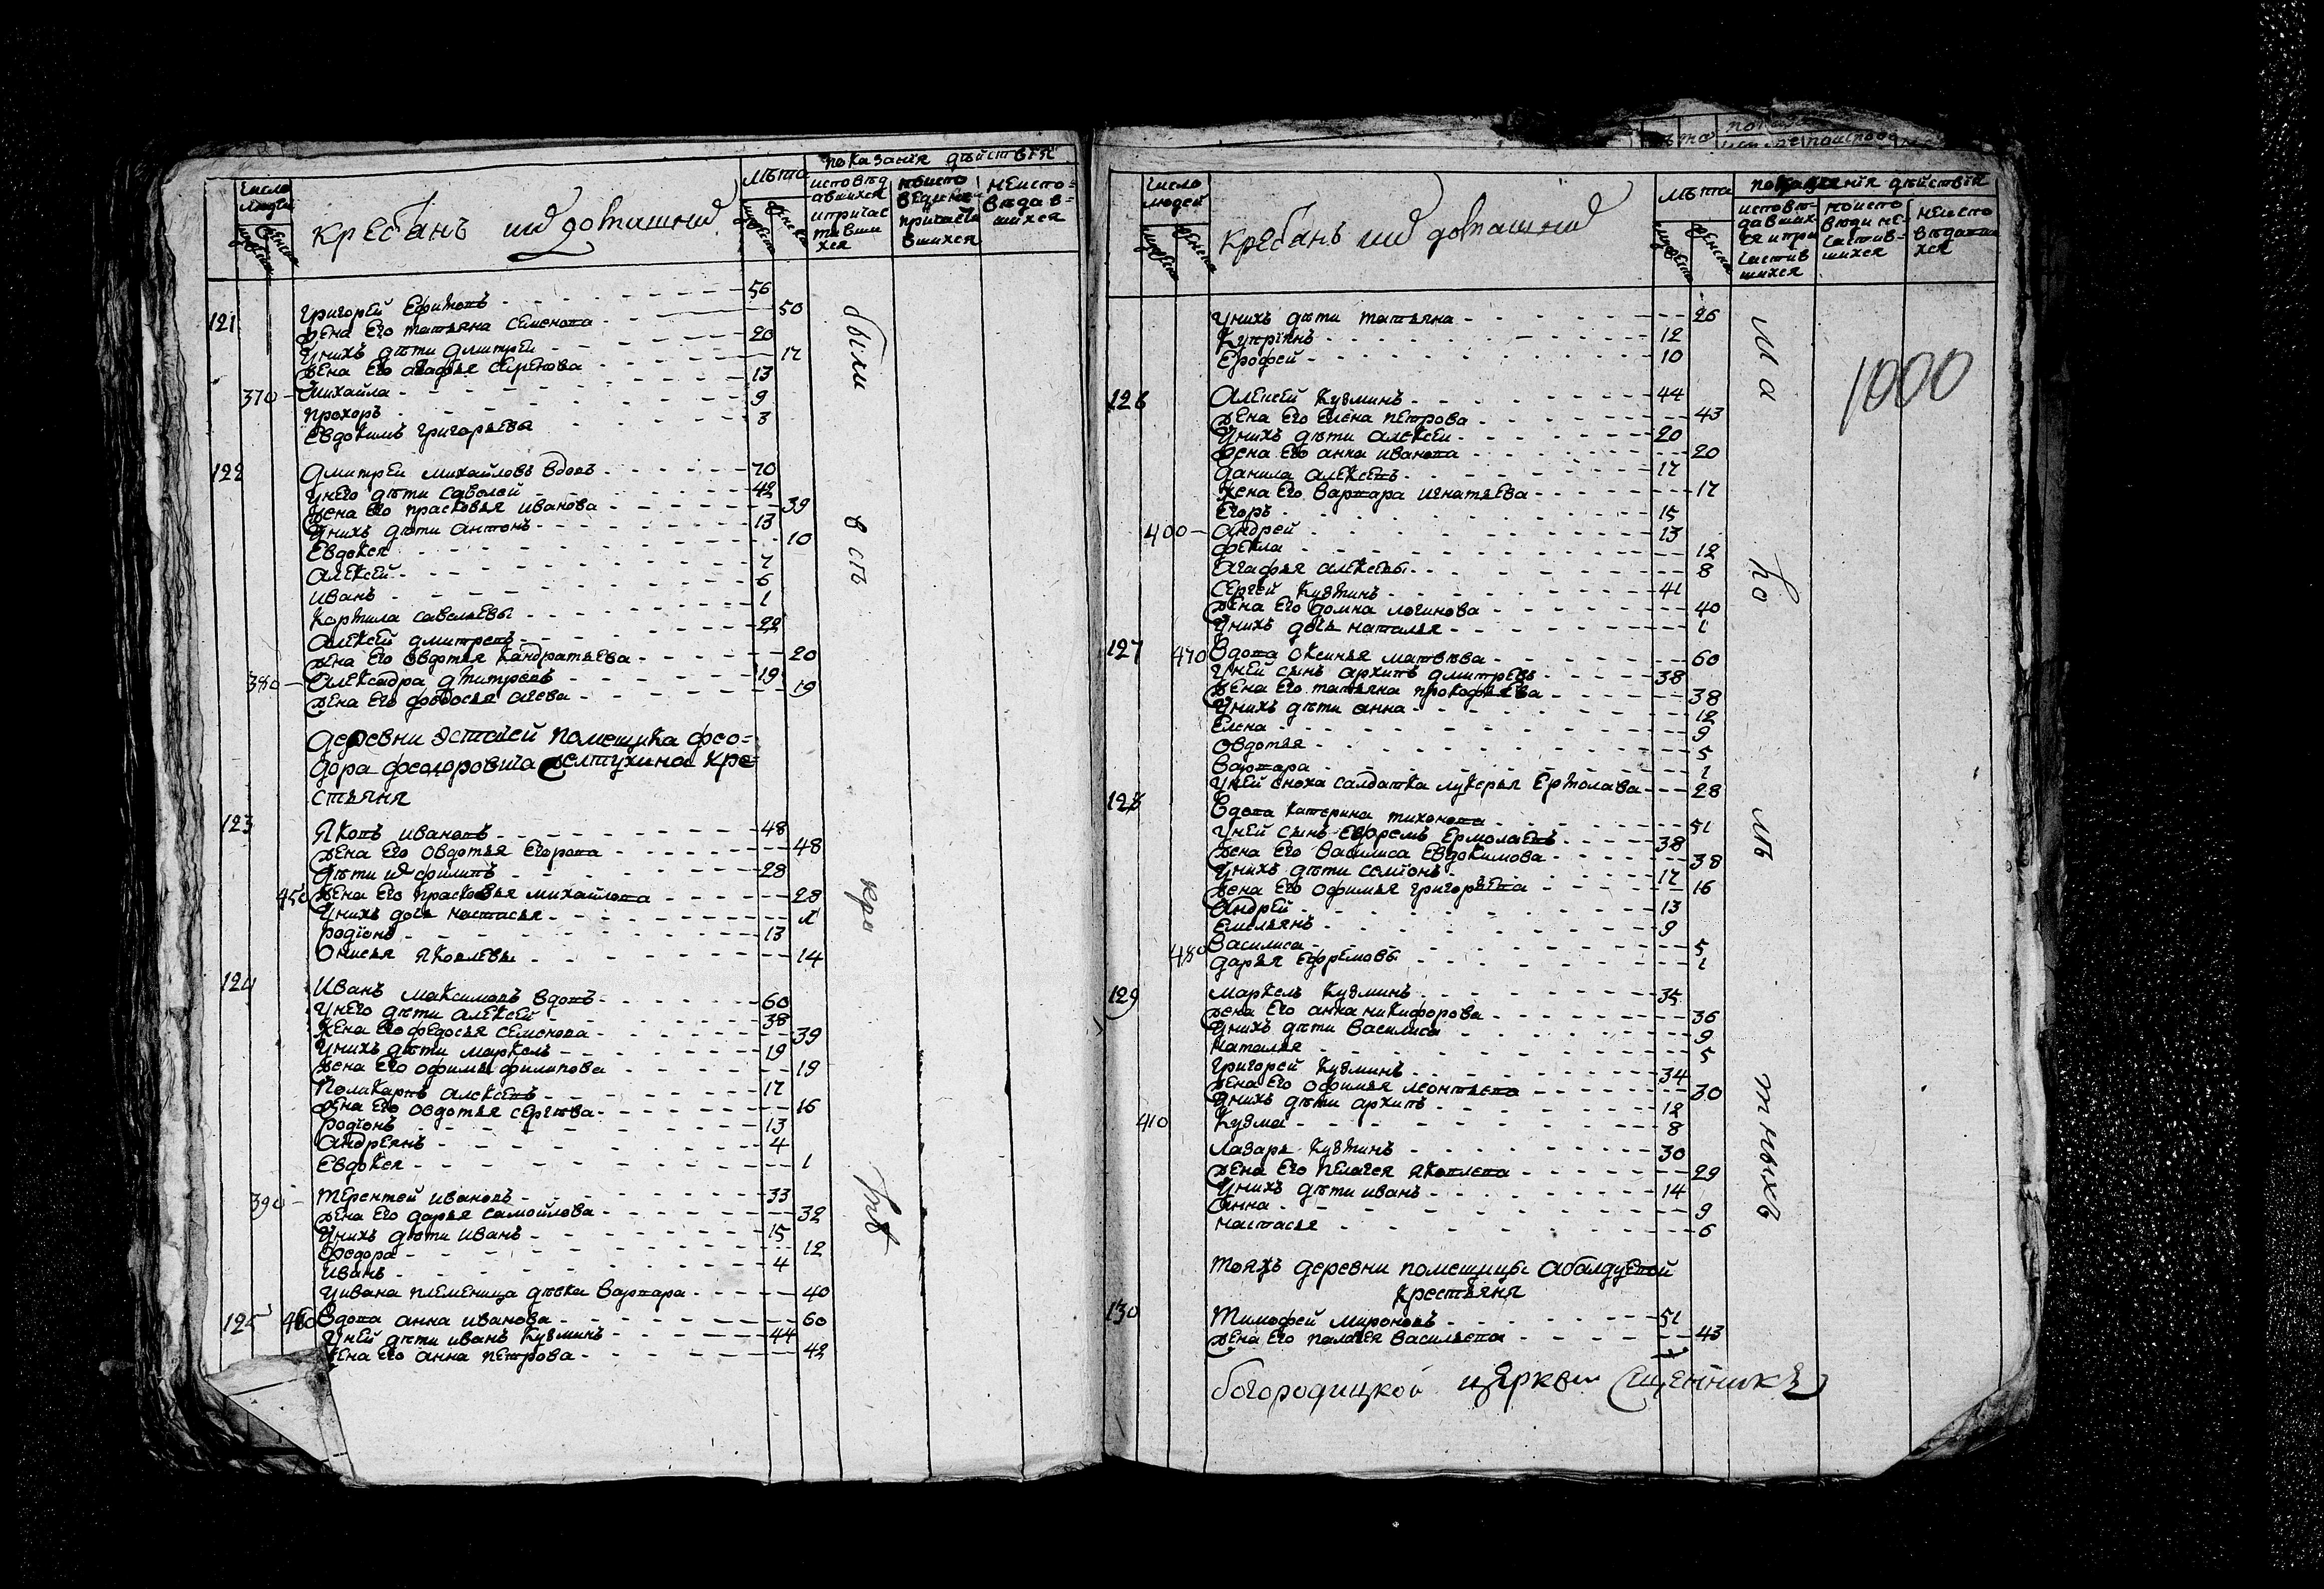 число людей
лѣта
показания дѣйствія
исповѣдавшихся и причаставшихся
крестьянъ их домашнии
121 Григорей Ефимовъ 56
жена его татьяна семенова 50
Унихъ дѣти дмитрей 20
жена его агафья 17
370 михайла 13
прохоръ 9
Евдокимъ григорьевы 3
122 дмитреи михайловъ вдовъ 70
Унего дѣти савелей 42
жена его прасковья иванова 39
Унихъ дѣти антонъ 13
Евдокея 10
алексей 7
иванъ 6
савельевы 1
алексей дмитревъ 22
жена его овдотья кандратьева 20
380 алексадра дмитревъ 19
жена его 19
деревни помещика фео=
дора феодоровича желтухина кре
стьяня
123 Яковъ ивановъ 48
жена его овдотья егорова 48
дѣти их филипъ 28
жена его прасковья михайлова 28
Унихъ дочь настасья
родионъ 13
Онисья яковлевы 14
124 Иванъ максимовъ вдовъ 60
Унего дѣти алексей 38
жена его федосья семенова 39
Унихъ дѣти маркелъ 19
жена его офимья филипова 19
Поликарпъ алексевъ 17
жена его овдотья сергѣва 16
родионъ 13
андреянъ 4
Евдокея 1
390 терентей ивановъ 33
жена его дарья самойлова 32
Унихъ дѣти иванъ 15
федора 12
иванъ 4
Уивана племеница дѣвка варвара 40
125 вдова анна иванова 60
Уней дѣти иванъ кузминъ 44
жена его анна петрова 42
были
число людей
лѣта
показания дѣйствія
крестьянъ их домашнии
Унихъ дѣти татьяна 26
Купріянъ 12
Ерофей 10
1000
126 алексей кузминъ 44
жена его елена петрова 43
Унихъ дѣти алексеи 20
жена его анна иванова 20
данила алексевъ 17
жена его варвара игнатьева 17
Егоръ 15
400 андрей 13
фекла 12
агафья алексевы 8
сергей кузминъ 41
жена его домна логинова 40
Унихъ дочь наталья 1
127 470 вдова оксинья матвѣва 60
Уней сынъ архипъ дмитревъ 38
жена его татьяна прокофьева 38
Унихъ дѣти анна 12
Елена 9
овдотья 5
варвара 1
Уней сноха салдатка лукерья ермолава 28
128 вдова катерина тихонова 51
Уней сынъ ефремъ ермолаевъ 38
жена его василиса евдокимова 38
Унихъ дѣти семіонъ 17
жена его офимья григорьева 16
андрей 13
Емельянъ 9
480 василиса 5
дарья ефремовы 1
129 маркелъ кузминъ 35
жена его анна никифорова 36
Унихъ дѣти василиса 9
наталья 5
григорей кузминъ 34
жена его офимья леонтьева 30
Унихъ дѣти архипъ 12
410 Кузма 8
лазарь кузминъ 30
жена его пелагея яковлева 29
Унихъ дѣти иванъ 14
анна 9
настасья 6
тояжъ деревни помещицы абалдуевой
крестьяня
130 тимофей мироновъ 51
жена его палагея васильева 43
богородицкой церкви